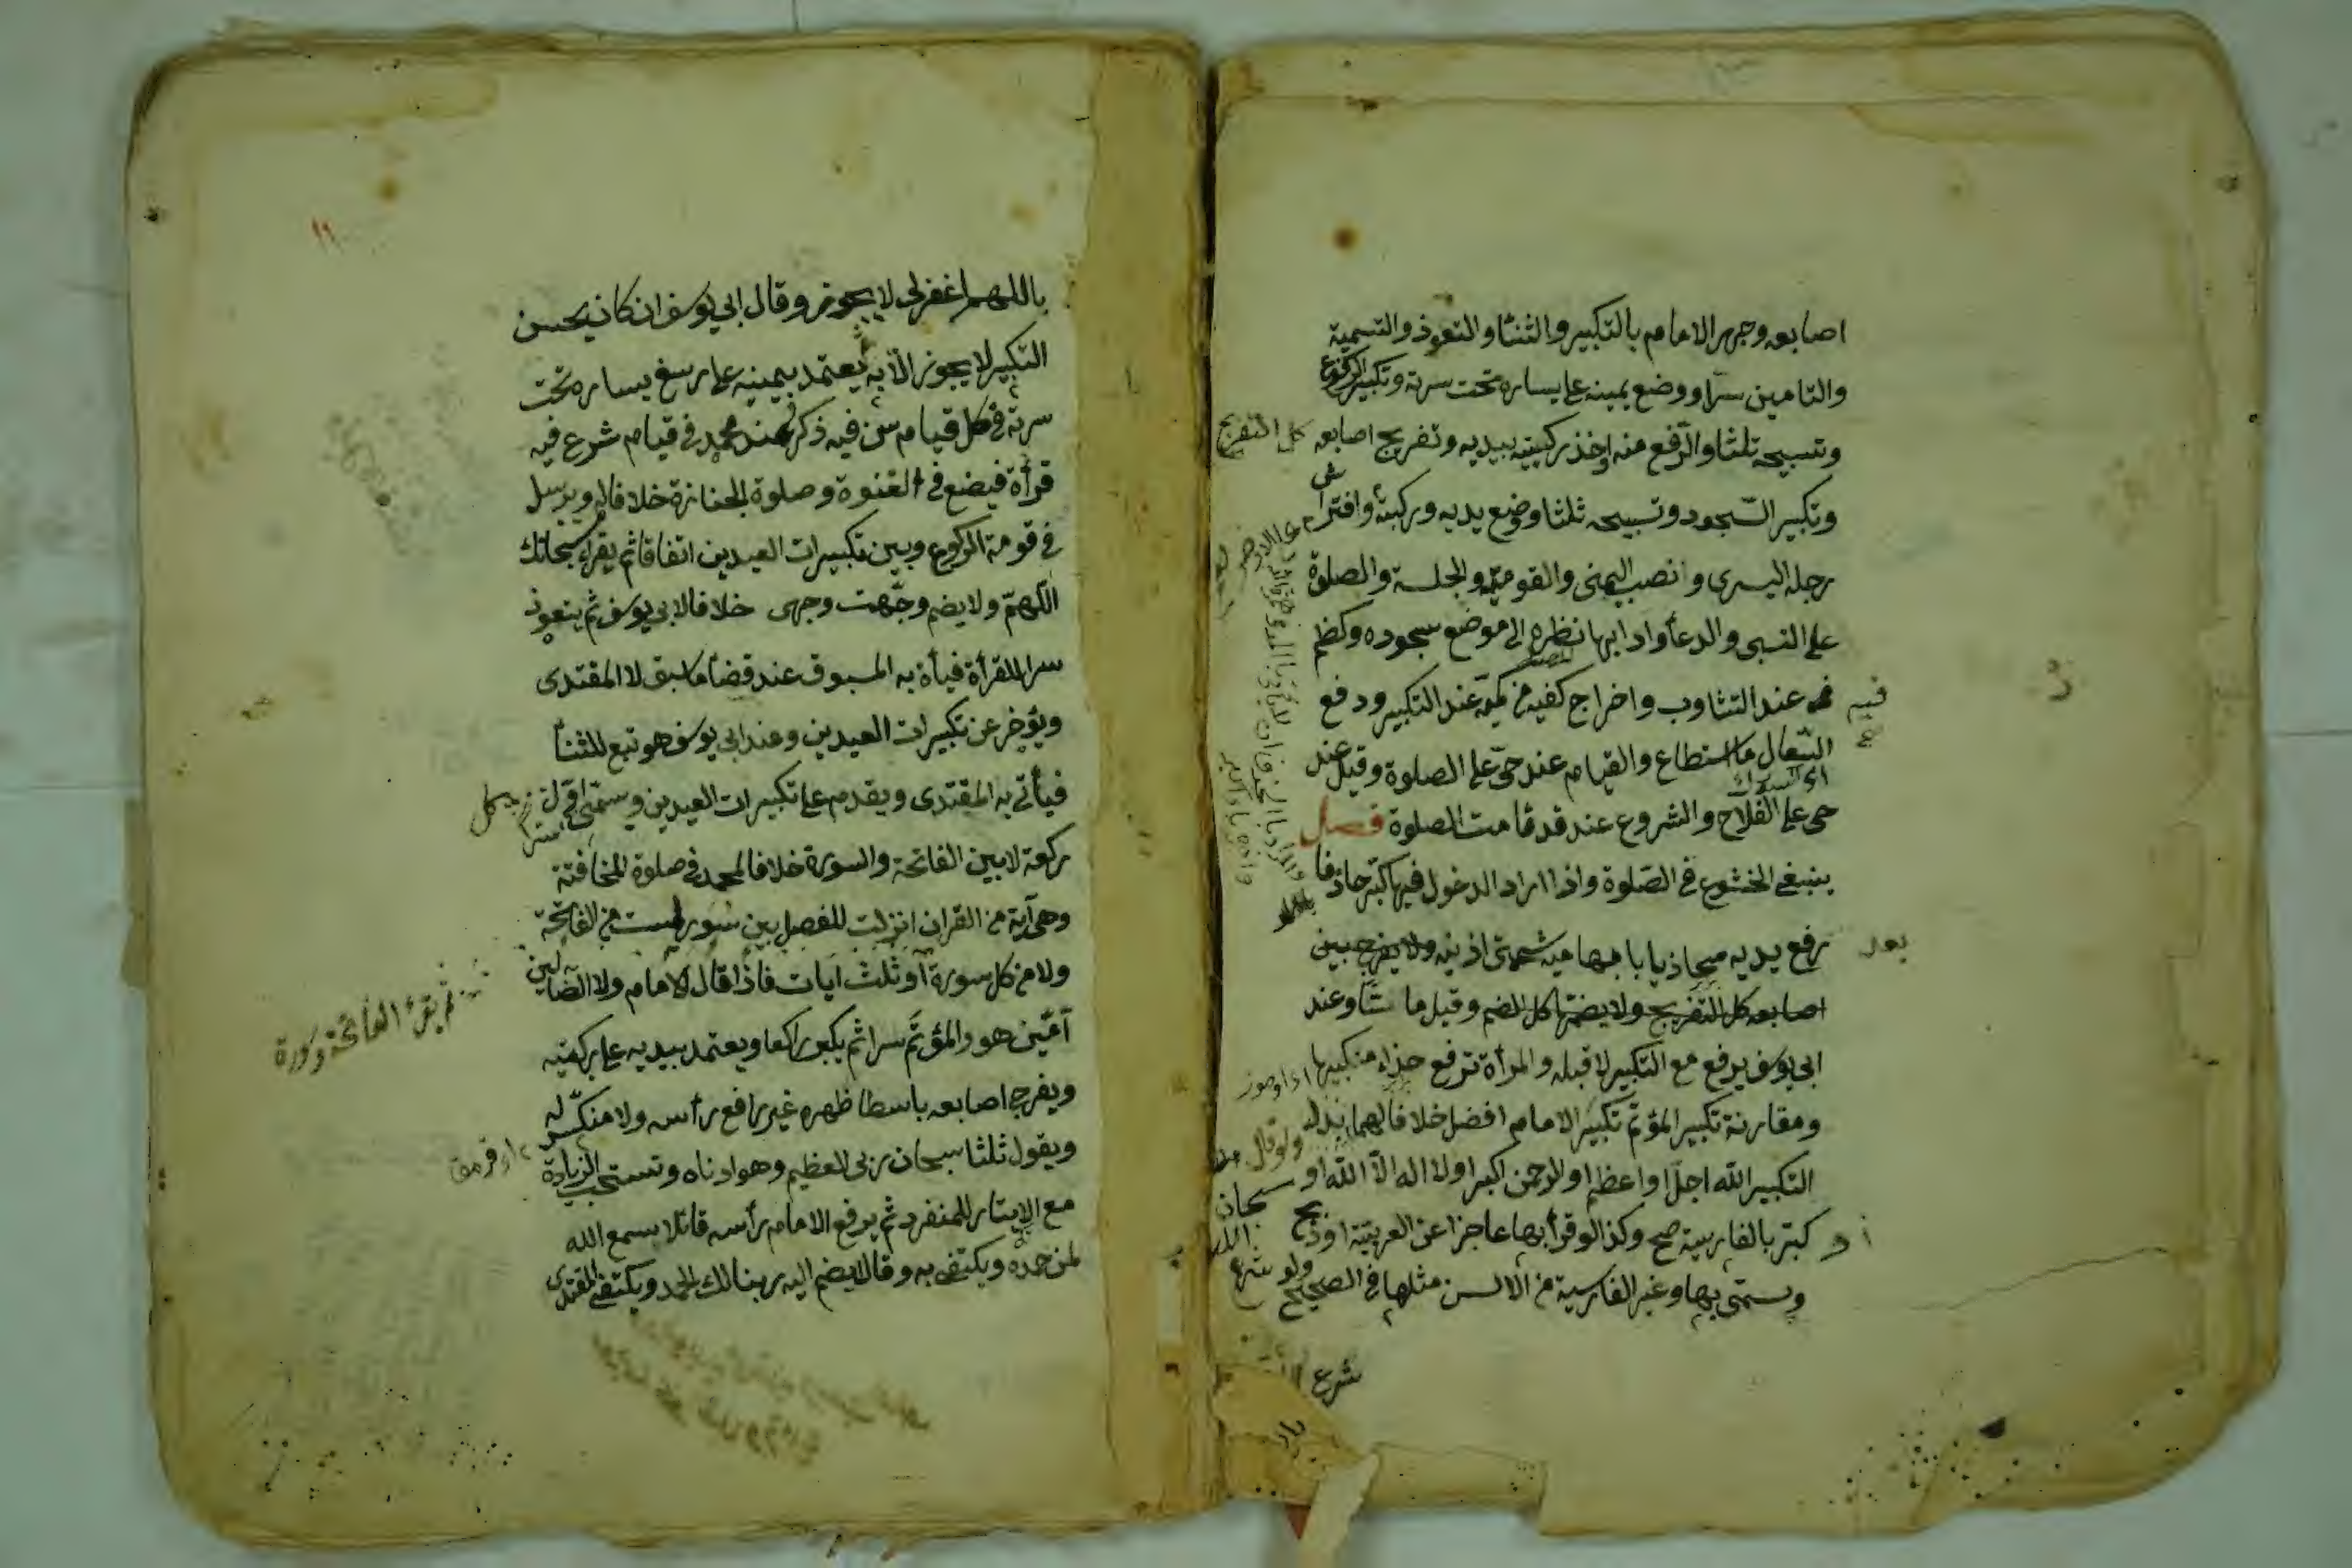 اصابعه وجهر الامام بالتكبير والثنا والتعوذ والتسمية
والتامين سرّا ووضع يمينه على يساره تحت سرته وتكبير الركوع
وتسبيحه ثلثا والرّفع منه واخذ ركبتيه بيديه وتفريج اصابعه كل التفريج
وتكبير السّجود وتسبيحه ثلثا ووضع يديه وركبتيه وافتراش
رجله اليسرى وانصب اليمنى والقومة والجلسة والصلوة
على النبى والدعأ وادابها نظره الى موضع سجوده وكظم
فمه عند التثاوب واخراج كفيه من كميه عند التكبير ودفع
السّعال ما استطاع والقيام عند حىّ على الصلوة وقيل عند
حى على الفلاح والشروع عند قد قامت الصلوة فصل
ينبغى الخشوع فى الصّلوة واذا اراد الدخول فيها كبّر حاذفا
بعد رفع يديه محاذيا بابهاميه شحمتى اذنيه ولا يفرج بين
اصابعه كل التفريج ولا يضمّها كل الضم وقيل ما شأ وعند
ابى يوسف يرفع مع التكبير لا قبله والمرأة ترفع حذاء منكبيها
ومقارنة تكبير المؤتمّ تكبير الامام افضل خلافا لهما ولو قال بدل
التكبير الله اجلّ او اعظم او الرحمن اكبر او لا اله الّا الله او سبحان
كبّر بالفارسية صح وكذا لو قرأ بها عاجزا عن العربيّة او ذبح
وسمّى بها وغير الفارسية من الالسن مثلها فى الصحيح ولو شرع
شرع
١١
باللهم اغفر لى لا يجوز وقال ابى يوسف ان كان يحسن
التكبير لا يجوز الّا به ثم يعتمد بيمينه على رسغ يساره تحت
سرته فى كل قيام سنّ فيه ذكر وعند محمد فى قيام شرع فيه
قرأة فيضع فى القنوة وصلوة الجنازة خلافا له ويرسل
فى قومة الركوع وبين تكبيرات العيدين اتفاقا ثم يقرأ سبحانك
اللهمّ ولا يضم وجّهت وجهى خلافا لابى يوسف ثم يتعوذ
سرا للقرأة فيأة به المسبوق عند قضأ ما سبق لا المقتدى
ويؤخر عن تكبيرات العيدين وعند ابى يوسف هو تبع للثنأ
فيأتى به المقتدى ويقدم على تكبيرات العيدين ويسمّى سرّا اوّل كل
ركعة لا بين الفاتحة والسورة خلافا لمحمد فى صلوة المخافتة
وهى آية من القران انزلت للفصل بين سور ليست من الفاتحة
ثم يقرأ الفاتحة وسورة
ولا من كل سورة او ثلث ايات فاذا قال الامام ولا الضالين
آمّين هو والمؤتمّ سرا ثم يكبر راكعا ويعتمد بيديه على ركبتيه
ويفرج اصابعه باسطا ظهره غير رافع رأسه ولا منكّس له
ويقول ثلثا سبحان ربى العظيم وهو ادناه وتستحب الزيادة
مع الايتار للمنفرد ثم يرفع الامام رأسه قائلا سمع الله
لمن حمده ويكتفى به وقالا يضم اليه ربنا لك الحمد ويكتفى المقتدى